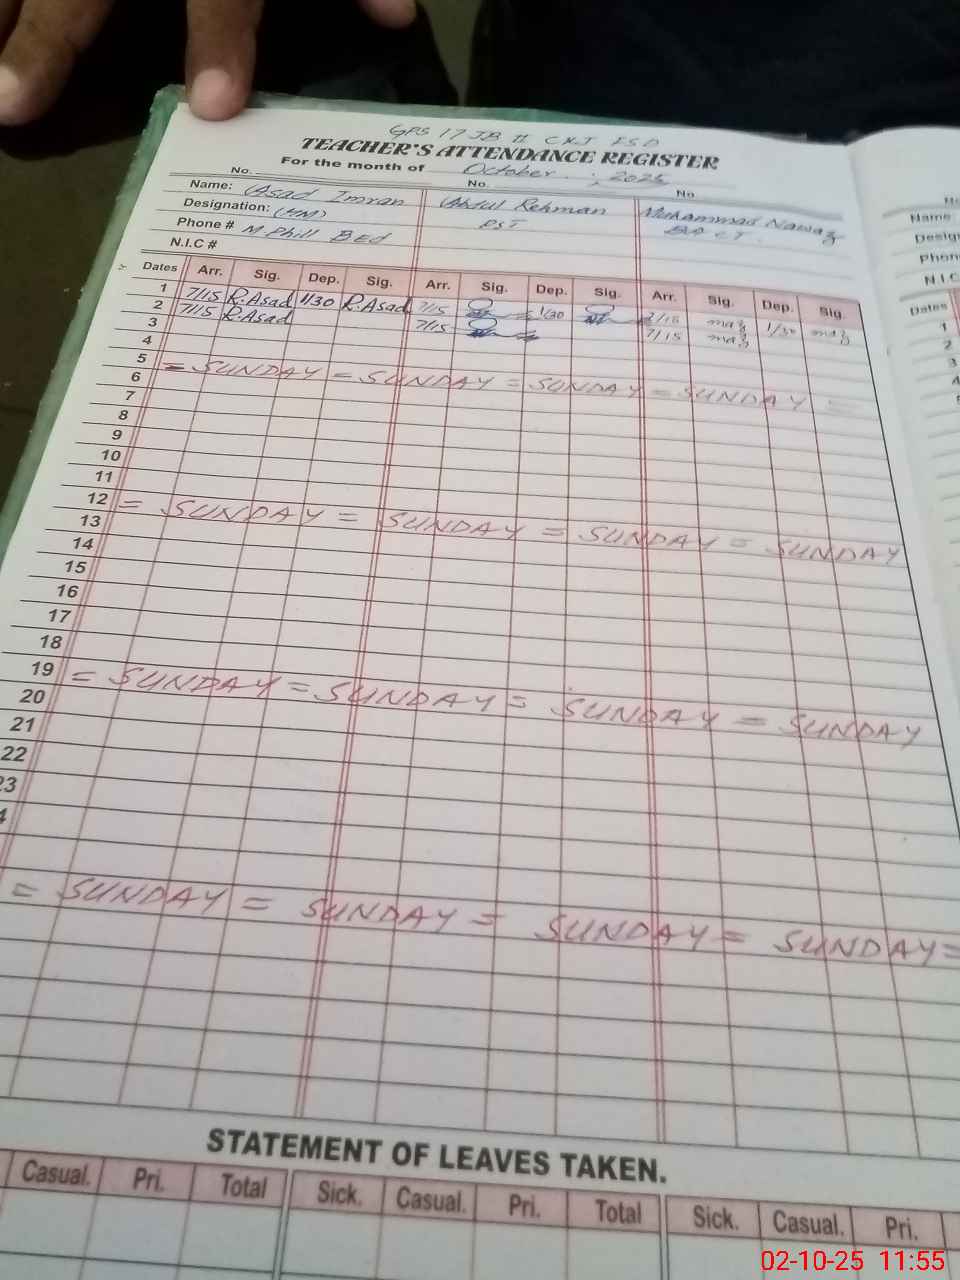 GPS 17 JB II CKJ FSD
TEACHER'S ATTENDANCE REGISTER
For the month of October 2025
No. No. No
Name: Asad Imran Abdul Rehman Muhammad Nawaz
Designation: (HM) PST BA CT.
Phone # M Phill BEd
N.I.C #
Dates Arr. Sig. Dep. Sig. Arr. Sig. Dep. Sig. Arr. Sig. Dep. Sig.
1 7/15 R.Asad 1/30 R.Asad 7/15 1/30 7/15 1/30
2 7/15 R.Asad 7/15 7/15
3
4
5 = SUNDAY = SUNDAY = SUNDAY = SUNDAY =
6
7
8
9
10
11
12 = SUNDAY = SUNDAY = SUNDAY = SUNDAY
13
14
15
16
17
18
19 = SUNDAY = SUNDAY = SUNDAY = SUNDAY
20
21
22
23
4
= SUNDAY = SUNDAY = SUNDAY = SUNDAY =
STATEMENT OF LEAVES TAKEN.
Casual. Pri. Total Sick. Casual. Pri. Total Sick. Casual. Pri.
Name:
Desig
Phon
N.I.C
Dates
1
2
3
02-10-25 11:55